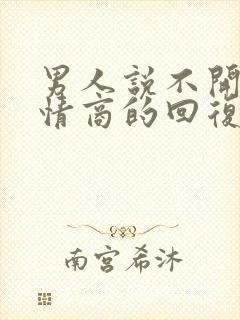 男人説不開
情商的回復
南宮希沐